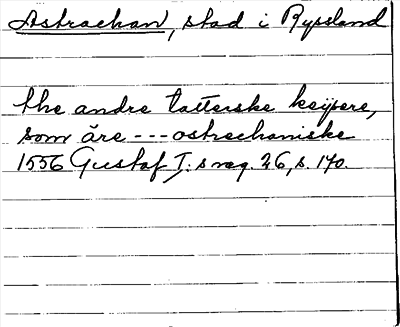 Astrachan, stad i Ryssland
the andre tatterske keijsere,
som äre --- astrachaniske
1556 Gustaf I:s reg. 26, s. 170.